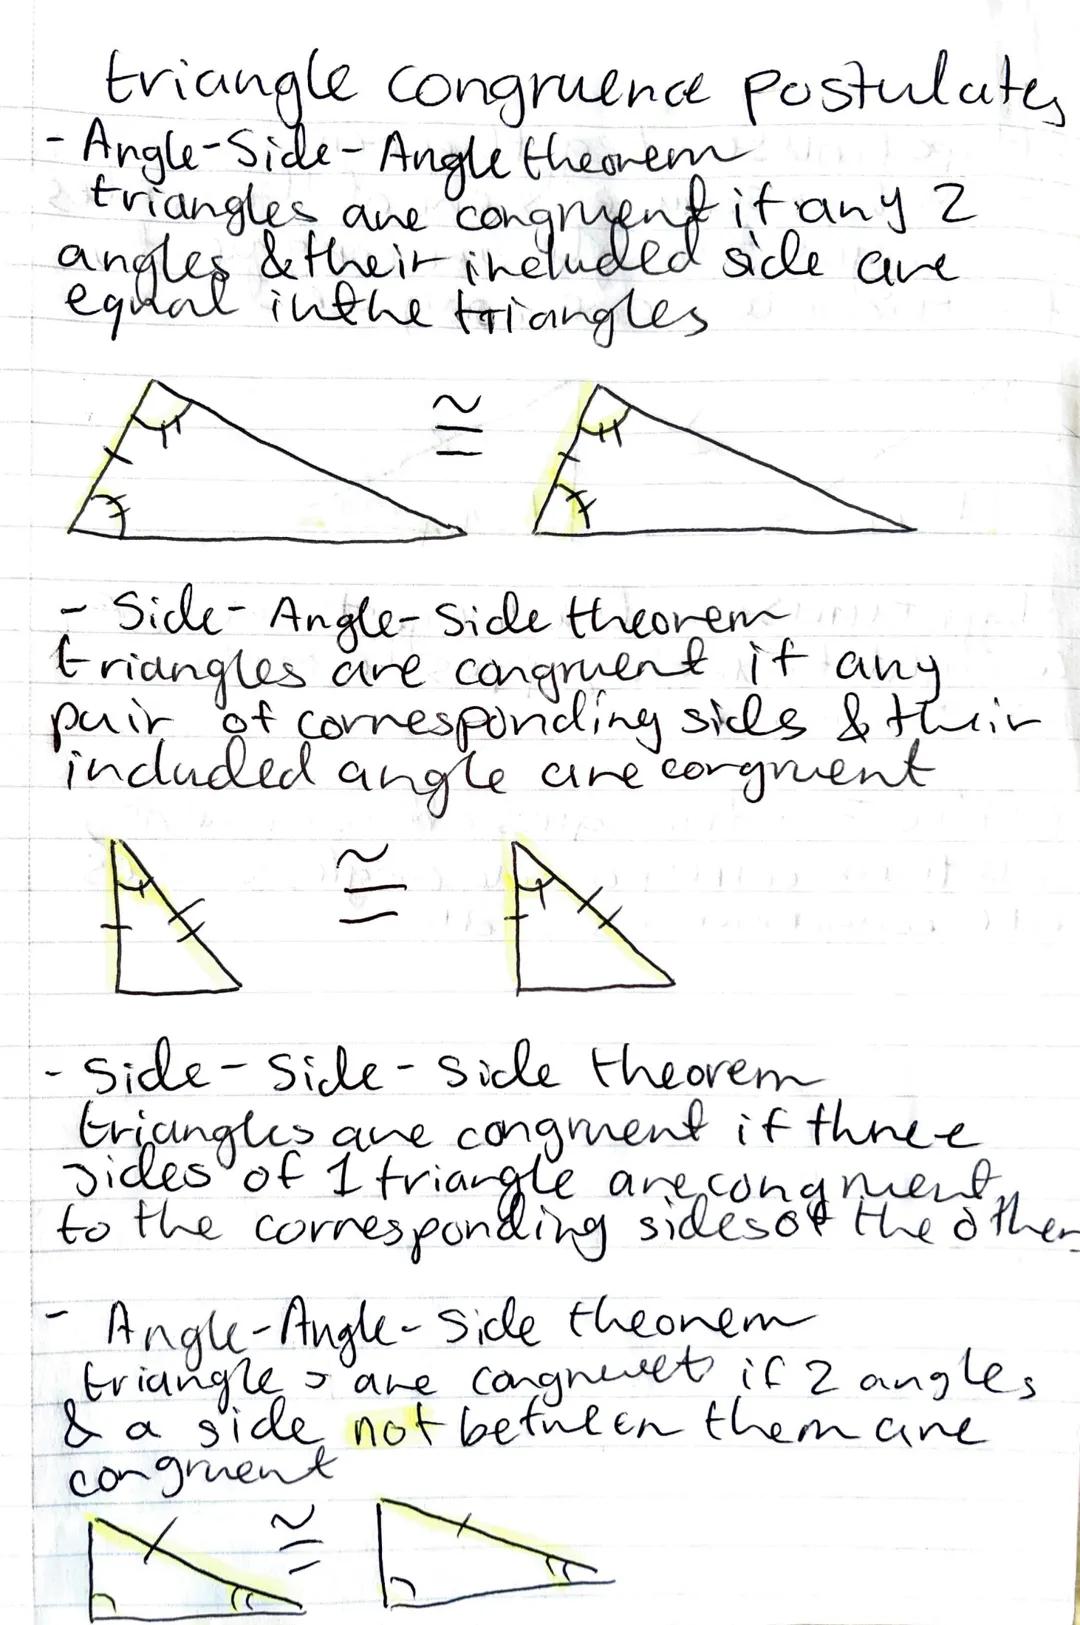 triangle congruence postulates
- Angle-Side-Angle theorem
triangles are congruent if any 2
angles & their included side are
equal in the triangles
≅
- Side-Angle-Side theorem
triangles are congruent if any
pair of corresponding sides & their
included angle are congruent
≅
- Side-Side-Side theorem
triangles are congruent if three
sides of 1 triangle are congruent
to the corresponding sides of the other
- Angle-Angle-Side theorem
triangles are congruet if 2 angles
& a side not between them are
congruent
≅